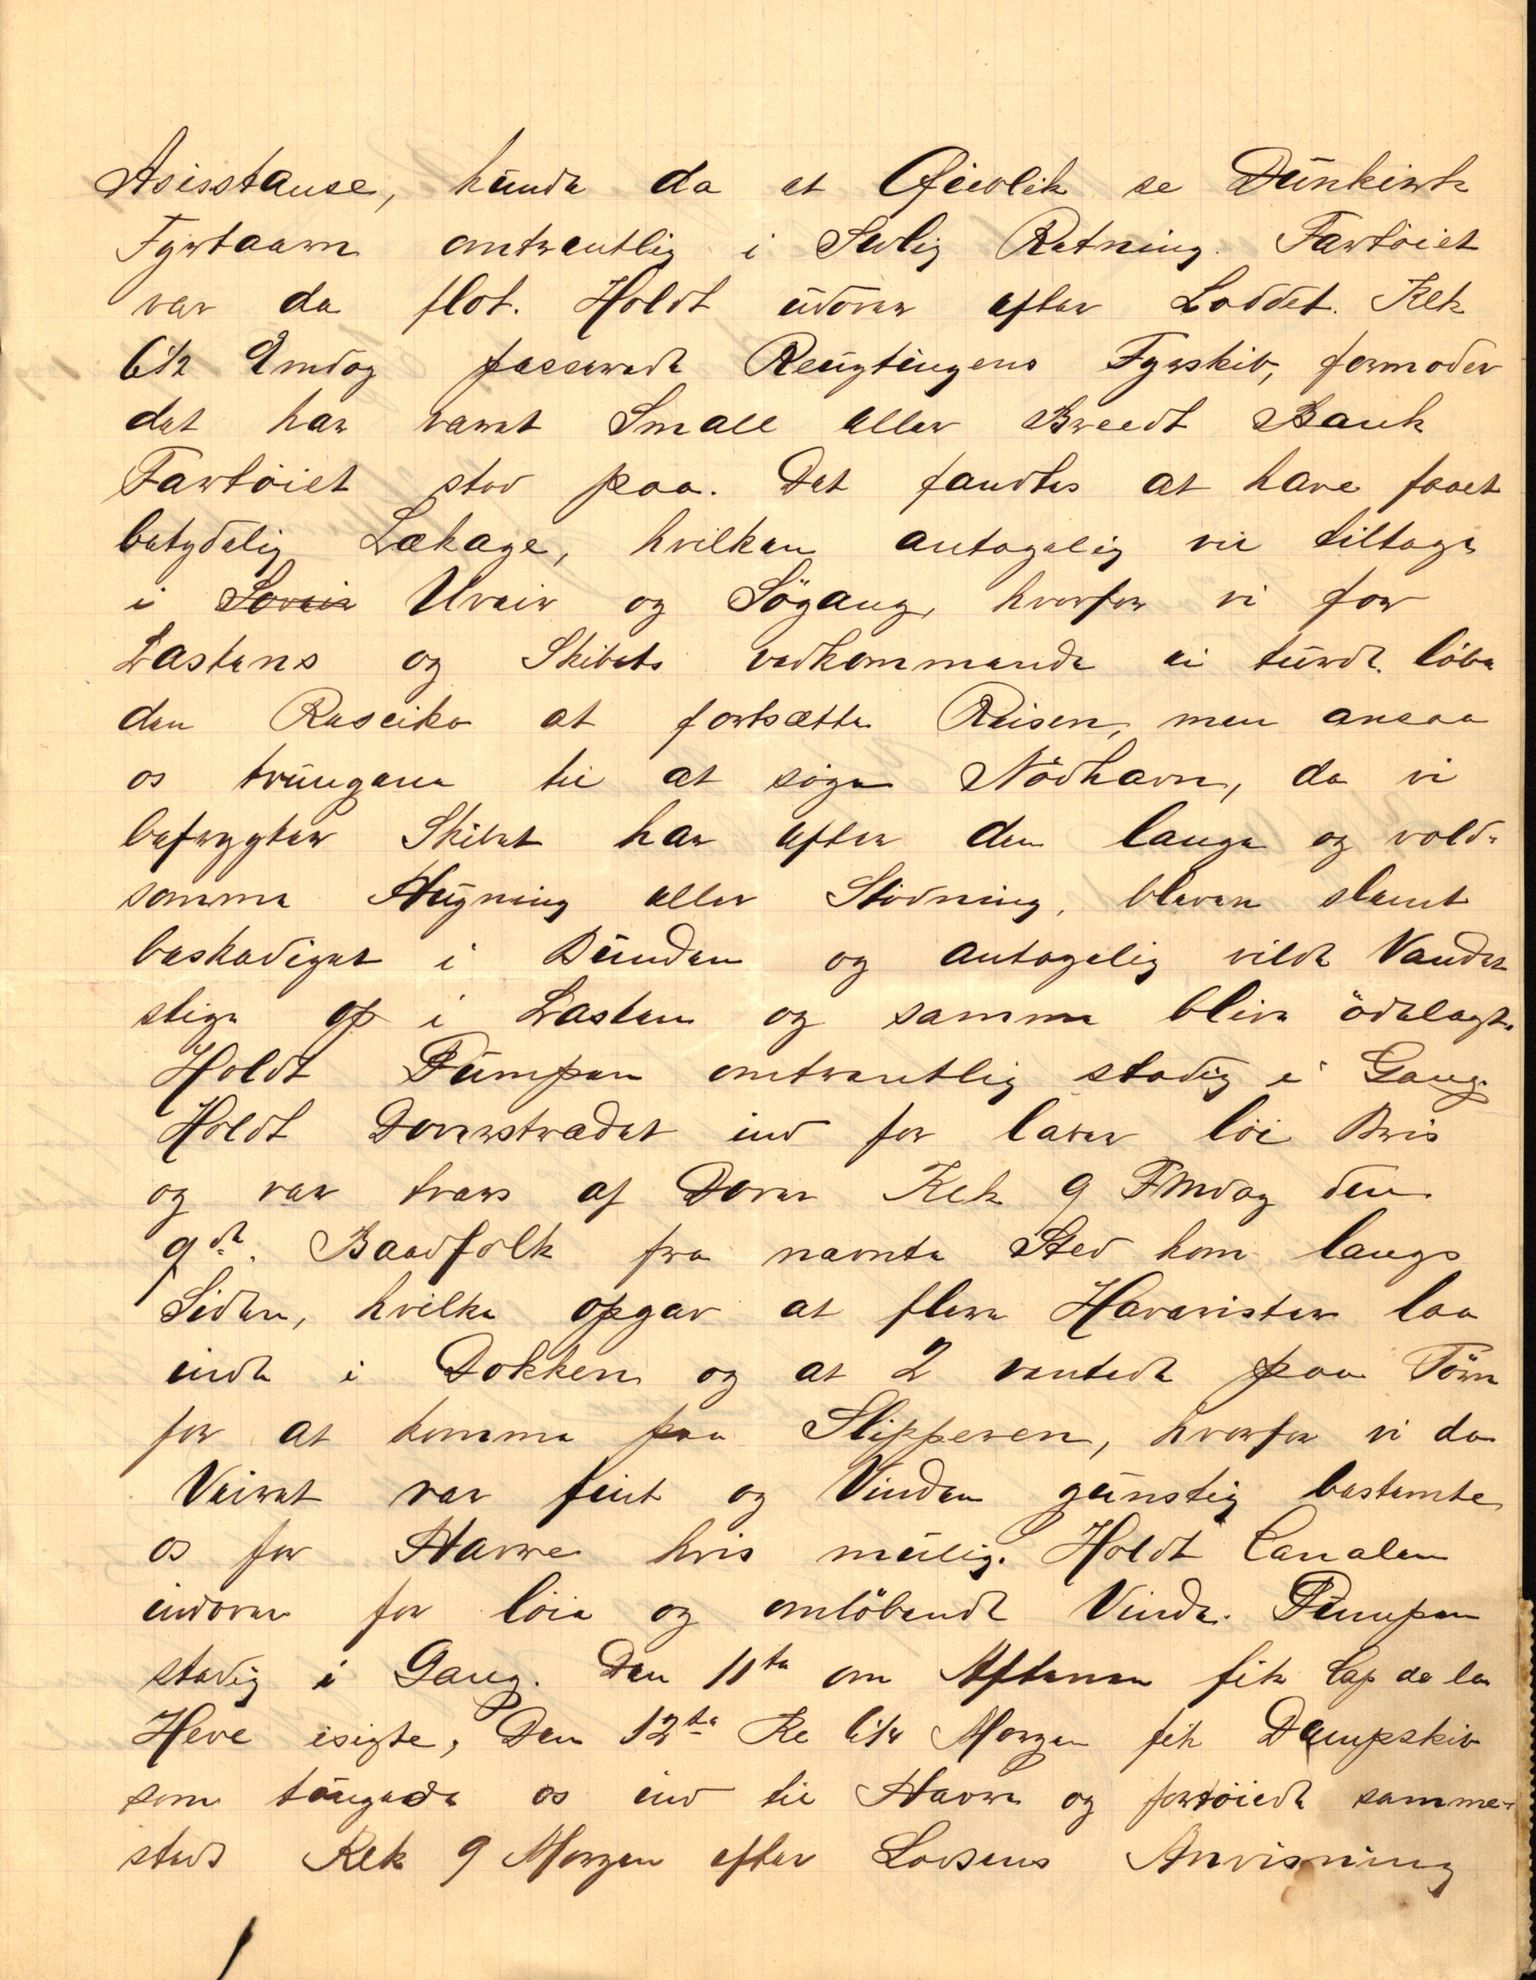 Asisstanse, kunde da et Øieblik se Dünkirks
Fyrtaarn omtrentlig i Sydlig Retning. Fartöiet
var da flot. Holdt udover efter Loddet. Klk
6 1/2 Emdag passerede Reugtingens Fyrskib, formoder
det har været Small eller Breedt Bank
Fartöiet stod paa. Det fandtes at have faaet
betydelig Lækage, hvilken antagelig vil tiltage
i Uveir og Sögang, hvorfor vi for
Lastens og Skibets vedkommende ei turde löbe
den Rasciko at fortsætte Reisen, men ansaa
os tvungene til at söge Nödhavn, da vi
befrygter Skibet har efter den lange og vold-
somme Hugning eller Stödning, bleven slemt
beskadiget i Bunden og antagelig vilde Vandet
stige op i Lasten og samme blive ödelagt.
Holdt Pumpen omtrentlig stadig i Gang.
Holdt Doverstrædet ind for laver löi Bris
og var tvers af Dover Klk 9 Fmdag den
9de. Baadfolk fra nævnte Sted kom langs
Siden, hvilke opgav at flere Havarister laa
inde i Dokken og at 2 ventede paa Törn
for at komme paa Slipperen, hvorfor vi da
Veiret var feint og Vinden günstig bestemte
os for Havre hvis mülig. Holdt Canalen
indover for löie og omlöbende Vinde. Pumpen
stadig i Gang. Den 11te om Aftenen fik Cap de la
Heve isigte, Den 12te Kl 6 1/4 Morgen fik Dampskib
som tougede os ind til Havre og fortöiede samme-
steds Klk 9 Morgen efter Lodsens Anvisning